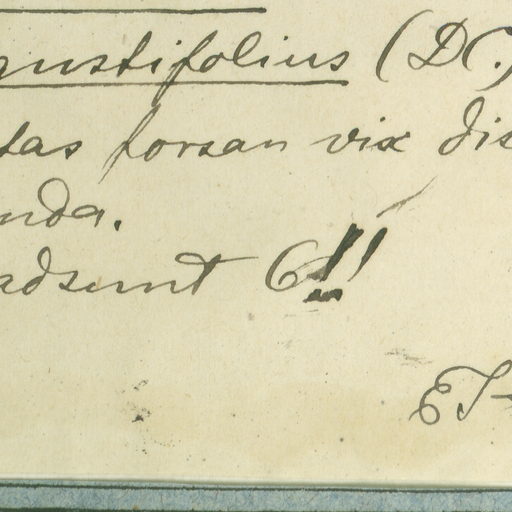 gustifolius (DC.)
tas forsan vix dis
nda.
adsunt 6!!
ET